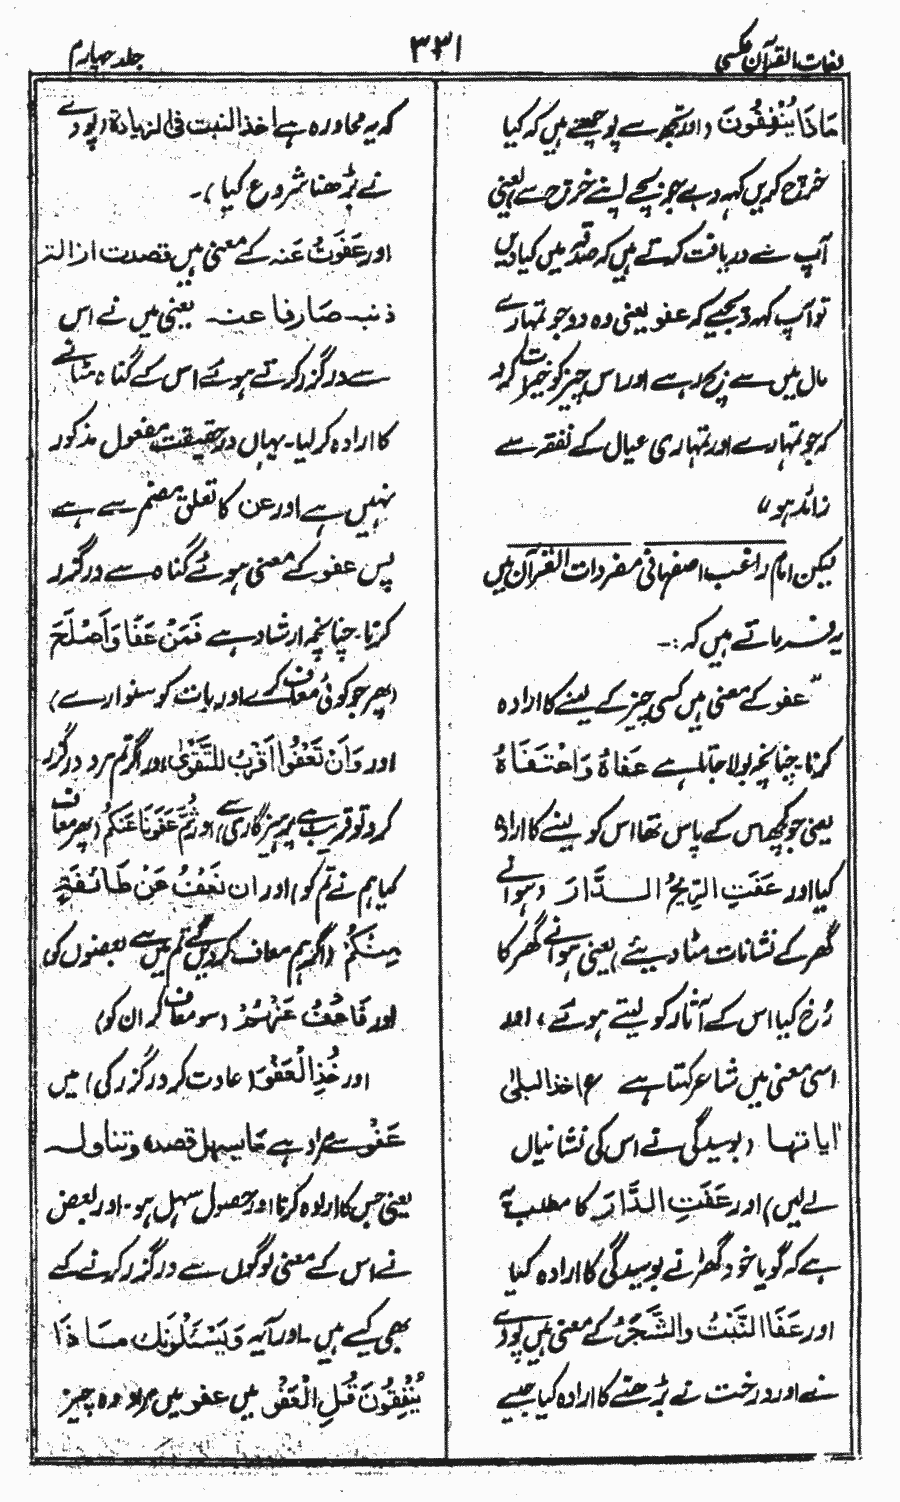 لغات القرآن عکسی
۳۳۱
جلد چہارم
مَاذَا يُنْفِقُونَ (اور تجھ سے پوچھتے ہیں کہ کیا
خرچ کریں کہہ دیجئے جو بچے اپنے خرچ سے) یعنی
آپ سے دریافت کرتے ہیں کہ صدقہ میں کیا دیں
تو آپ کہہ دیجئے کہ عفو یعنی وہ دو جو تمہارے
مال میں سے بچ رہے اور اس چیز کو خیرات کرو
کہ جو تمہارے اور تمہاری عیال کے نفقہ سے
زائد ہو"
لیکن امام راغب اصفہانی مفردات القرآن میں
یہ فرماتے ہیں کہ :۔
"عفو کے معنی ہیں کسی چیز کے لینے کا ارادہ
کرنا۔ چنانچہ بولا جاتا ہے عَفَاہُ وَاعْتَفَاہُ
یعنی جو کچھ اس کے پاس تھا اس کو لینے کا ارادہ
کیا اور عَفَتِ الرِّيحُ الدَّارَ (ہوا نے
گھر کے نشانات مٹا دیئے) یعنی ہوا نے گھر کا
رُخ کیا اس کے آثار کو لیتے ہوئے، اور
اسی معنی میں شاعر کہتا ہے ع اخذ البلیٰ
اٰیاتہا (بوسیدگی نے اس کی نشانیاں
لے لیں) اور عَفَتِ الدَّارَ کا مطلب یہ
ہے کہ گویا خود گھر نے بوسیدگی کا ارادہ کیا
اور عَفَا النَّبْتُ والشَّجَرُ کے معنی ہیں پودے
نے اور درخت نے بڑھنے کا ارادہ کیا جیسے
کہ یہ محاورہ ہے اخذ النبت فی الزیادۃ (پودے
نے بڑھنا شروع کیا)۔
اور عَفَوْتُ عَنہ کے معنی ہیں قصدت ازالۃ
ذنبہ صَارفا عنہ یعنی میں نے اس
سے درگزر کرتے ہوئے اس کے گناہ مٹانے
کا ارادہ کر لیا۔ یہاں درحقیقت مفعول مذکور
نہیں ہے اور عن کا تعلق مضمر سے ہے
پس عفو کے معنی ہوئے گناہ سے درگزر
کرنا۔ چنانچہ ارشاد ہے فَمَنْ عَفَا وَاَصْلَحَ
(پھر جو کوئی معاف کرے اور بات کو سنوارے)
اور وَاَنْ تَعْفُوْا اَقْرَبُ لِلتَّقْوٰى (اور اگر تم مرد درگزر
کرو تو قریب ہے پرہیزگاری سے) اور ثُمَّ عَفَوْنَا عَنْكُمْ (پھر معاف
کیا ہم نے تم کو) اور ان نَعْفُ عَنْ طَائِفَةٍ
مِنْكُمْ (اگر ہم معاف کر دیں گے تم میں سے بعضوں کو)
اور فَاعْفُ عَنْهُمْ (سو معاف کر ان کو)
اور خُذِ الْعَفْوَ (عادت کر درگزر کی) میں
عَفْو سے مراد ہے مَا سہل قصدہ وتناولہ
یعنی جس کا ارادہ کرنا اور حصول سہل ہو۔ اور بعض
نے اس کے معنی لوگوں سے درگزر کرنے کے
بھی کیے ہیں۔ اور آیہ وَيَسْئَلُونَكَ مَا ذَا
يُنْفِقُونَ قُلِ الْعَفْوَ میں عفو میں مراد وہ چیز